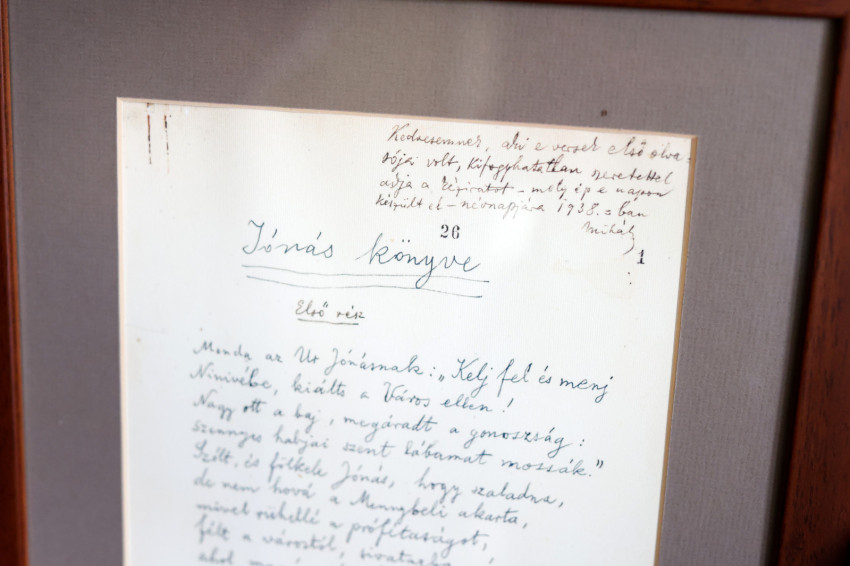 Kedvesemnek, aki e versek első olva-
sójai volt, kifogyhatatlan szeretettel
adja a kéziratot - mely ép e napon
készült el - névnapjára 1938.-ban
Mihály
26
1
Jónás könyve
Első rész
Monda az Ur Jónásnak: „Kelj fel és menj
Ninivébe, kiálts a Város ellen!
Nagy ott a baj, megáradt a gonoszság:
szennyes habjai szent lábamat mossák."
Szólt, és fölkele Jónás, hogy szaladna,
de nem hová a Mennybeli akarta,
mivel rühellé a prófétaságot,
félt a várostól, sivatagba
ahol